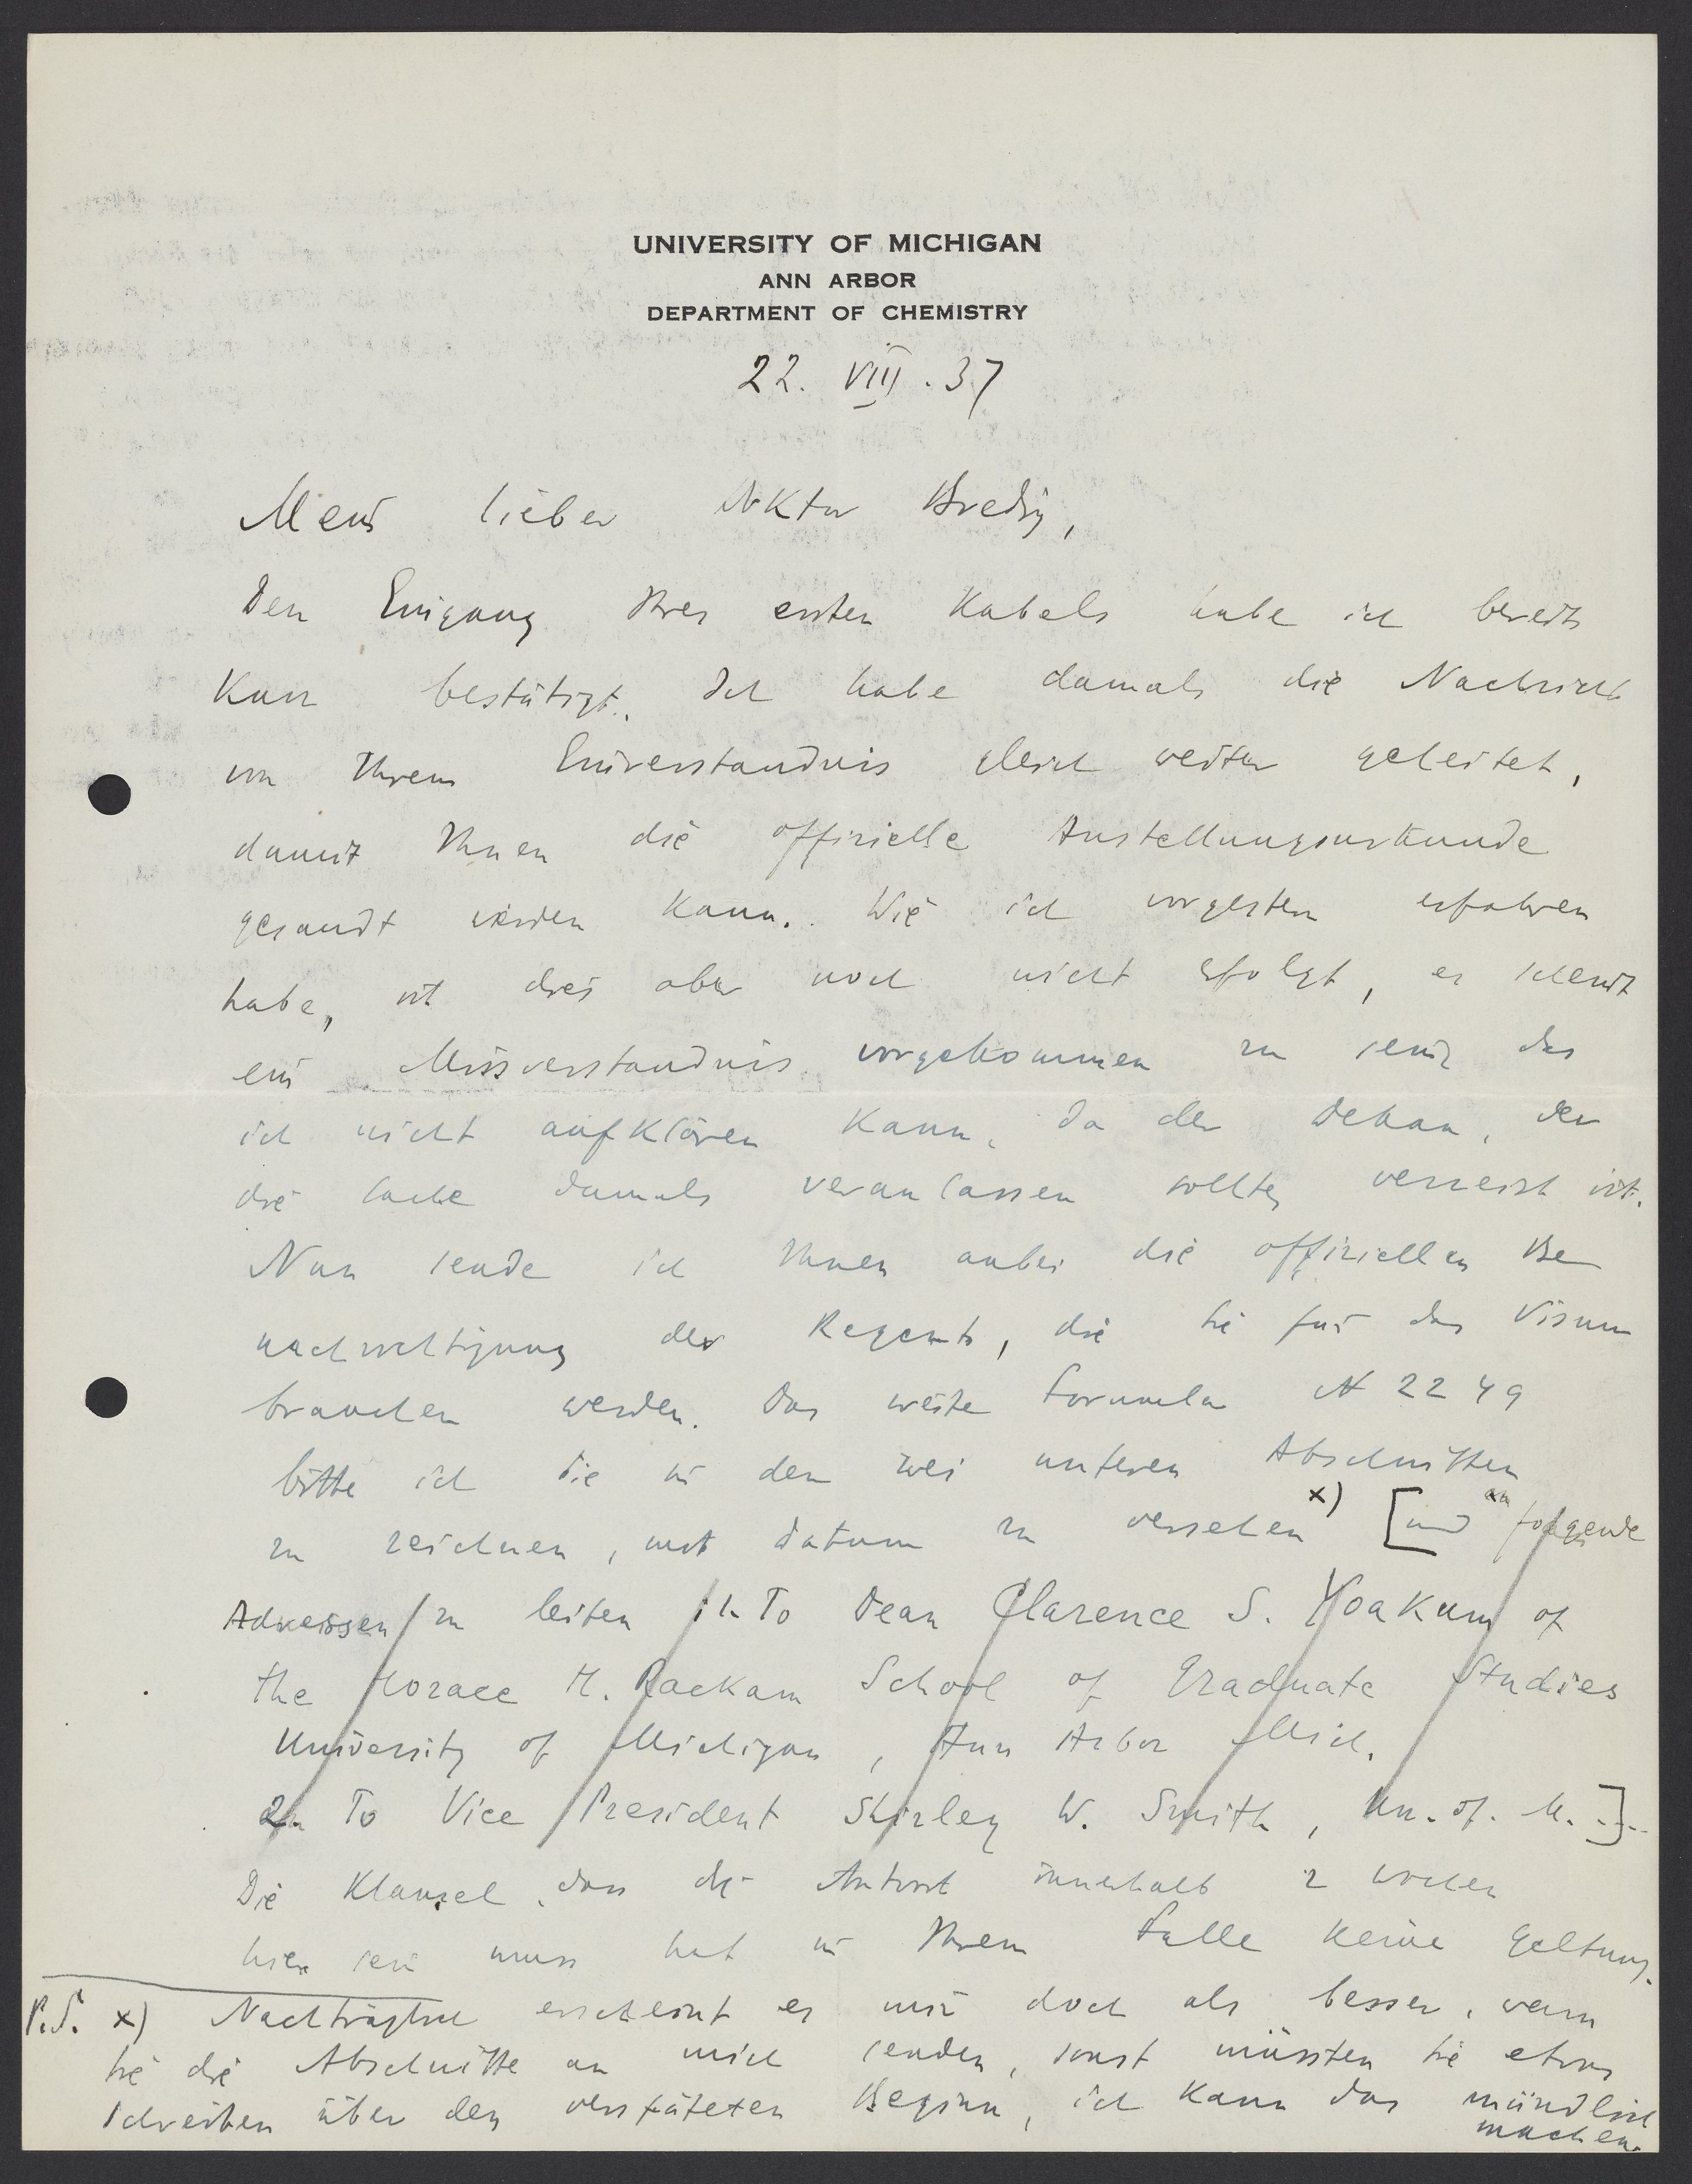 UNIVERSITY OF MICHIGAN
ANN ARBOR
DEPARTMENT OF CHEMISTRY
22. VIII. 37
Mein lieber Doktor Bredig,
Den Eingang Ihres ersten Kabels habe ich bereits
kurz bestätigt. Ich habe damals die Nachricht
von Ihrem Einverständnis gleich weiter geleitet,
damit Ihnen die offizielle Anstellungsurkunde
gesandt werden kann. Wie ich vorgestern erfahren
habe, ist dies aber noch nicht erfolgt, es scheint
ein Missverständnis vorgekommen zu sein, das
ich nicht aufklären kann, da der Dekan, der
die Sache damals veranlassen sollte, verreist ist.
Nun sende ich Ihnen anbei die offiziellen Be
nachrichtigung der Regents, die Sie für das Visum
brauchen werden. Das zweite Formular N 2249
bitte ich Sie in den zwei unteren Abschnitten
zu zeichnen, mit Datum zu versehen x) [und an folgende
Adressen zu leiten 1. To Dean Clarence S. Yoakum of
the Horace H. Rackam School of Graduate Studies
University of Michigan, Ann Arbor Mich.
2. To Vice President Shirley W. Smith, Un. of. M. ]
Die Klausel, dass die Antwort innerhalb 2 Wochen
hier sein muss hat in Ihrem Falle keine Geltung.
P.S. x) Nachträglich erscheint es mir doch als besser, wenn
Sie die Abschnitte an mich senden, sonst müssten Sie etwas
schreiben über den verspäteten Beginn, ich kann das mündlich
machen.